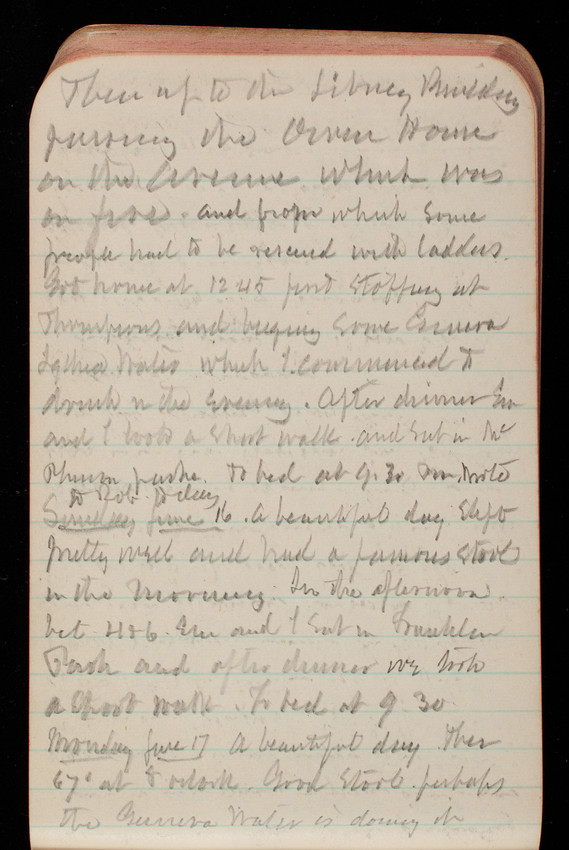 Then up to the Library Building
passing the Owen House
on the Avenue which was
on fire. and from which some
people had to be rescued with ladders.
Got home at 12 45 first stopping at
Thompsons and buying some Geneva
Lithia Water which I commenced to
drink in the evening. After dinner Em
and I took a short walk. and sat in Mc
Pherson parke. To bed at 9.30 Em wrote
to Rob. to day
Sunday June 16. A beautiful day. Slept
pretty well and had a famous stool
in the morning. In the afternoon.
bet. 4 & 6. Em and I sat in Franklin
Park and after dinner we took
a short walk. To bed at 9 30
Monday June 17 A beautiful day. Ther
67° at 8 oclock. Good stool. perhaps
the Geneva Water is doing it